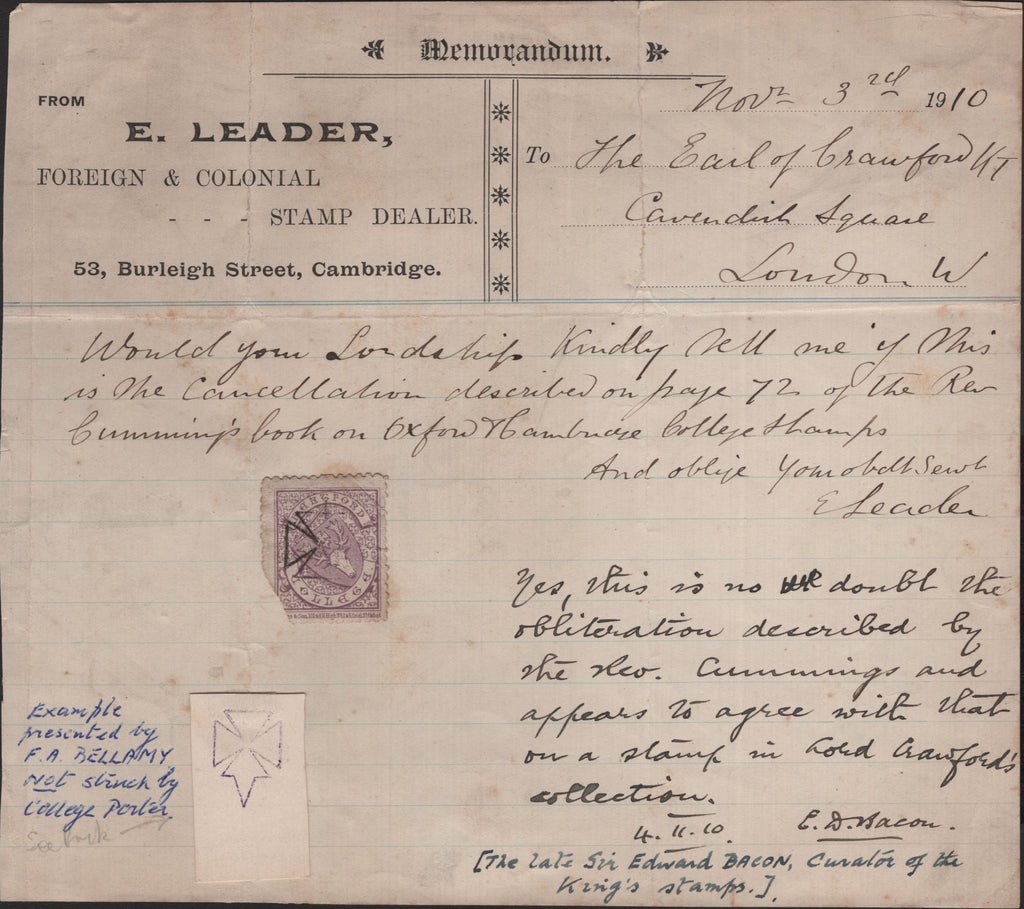 Memorandum.
Novr 3rd 1910
FROM
E. LEADER,
FOREIGN & COLONIAL
- - - STAMP DEALER.
53, Burleigh Street, Cambridge.
To The Earl of Crawford KT
Cavendish Square
London W
Would your Lordship Kindly tell me if this
is the Cancellation described on page 72 of the Rev
Cumming's book on Oxford & Cambridge College Stamps
And oblige Your obdt Servt
E Leader
HERTFORD
COLLEGE
Yes, this is no doubt the
obliteration described by
the Rev. Cummings and
appears to agree with that
on a stamp in Lord Crawford's
collection.
4.11.10. E. D. Bacon.
[The late Sir Edward BACON, Curator of the
King's stamps.]
Example
presented by
F.A. BELLAMY
Not struck by
College Porter.
See back